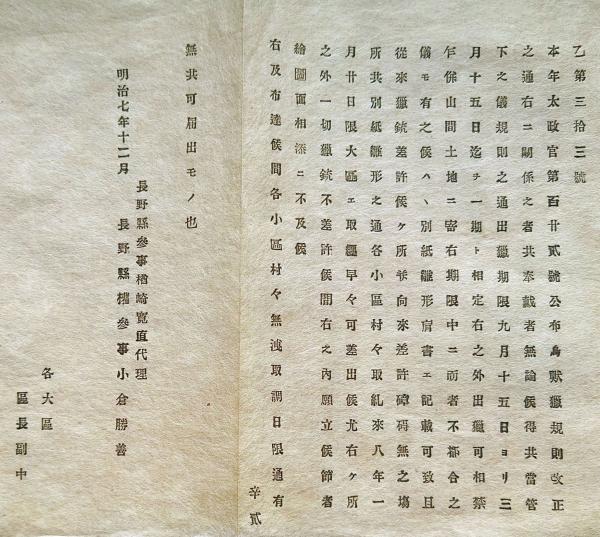 乙第三拾三號
本年太政官第百廿貳號公布鳥獸獵規則改正
之通右ニ關係之者共奉戴者無論候得共當管
下之儀規則之通出獵期限九月十五日ヨリ三
月十五日迄ヲ一期ト相定右之外出獵可相禁
乍併山間土地ニ寄右期限中ニ而者不都合之
儀モ有之候ハヽ別紙雛形肩書エ記載可致且
從來獵銃差許候ケ所並向來差許障碍無之塲
所共別紙雛形之通各小區村々取糺來八年一
月廿日限大區エ取纒早々可差出候尤右ケ所
之外一切獵銃不差許候間右之內願立候節者
繪圖面相添ニ不及候
右及布達候間各小區村々無洩取調日限通有
無共可屆出モノ也
明治七年十二月
長野縣參事楢崎寬直代理
長野縣權參事小倉勝善
各大區
區長副中
辛貳